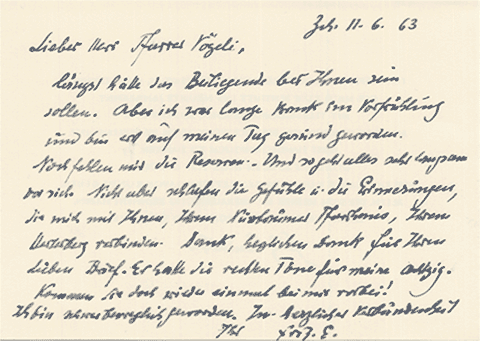 Zch. 11. 6. 63
Lieber Herr Pfarrer Vögeli,
längst hätte das Beiliegende bei Ihnen sein
sollen. Aber ich war lange krank im Vorfrühling
und bin erst auf meinen Tag gesund geworden.
Noch fehlen mir die Reserven. Und so geht alles sehr langsam
vor sich. Nicht aber schlafen die Gefühle u. die Erinnerungen,
die mich mit Ihnen, Ihrem Pfarrhaus, Ihrem
verbinden. Dank, herzlichen Dank für Ihren
lieben Brief. Er hatte die rechten Töne für meine
Kommen Sie doch wieder einmal bei mir vorbei!
Ich bin schwerbeweglich geworden. In herzlicher Verbundenheit
Ihr E.